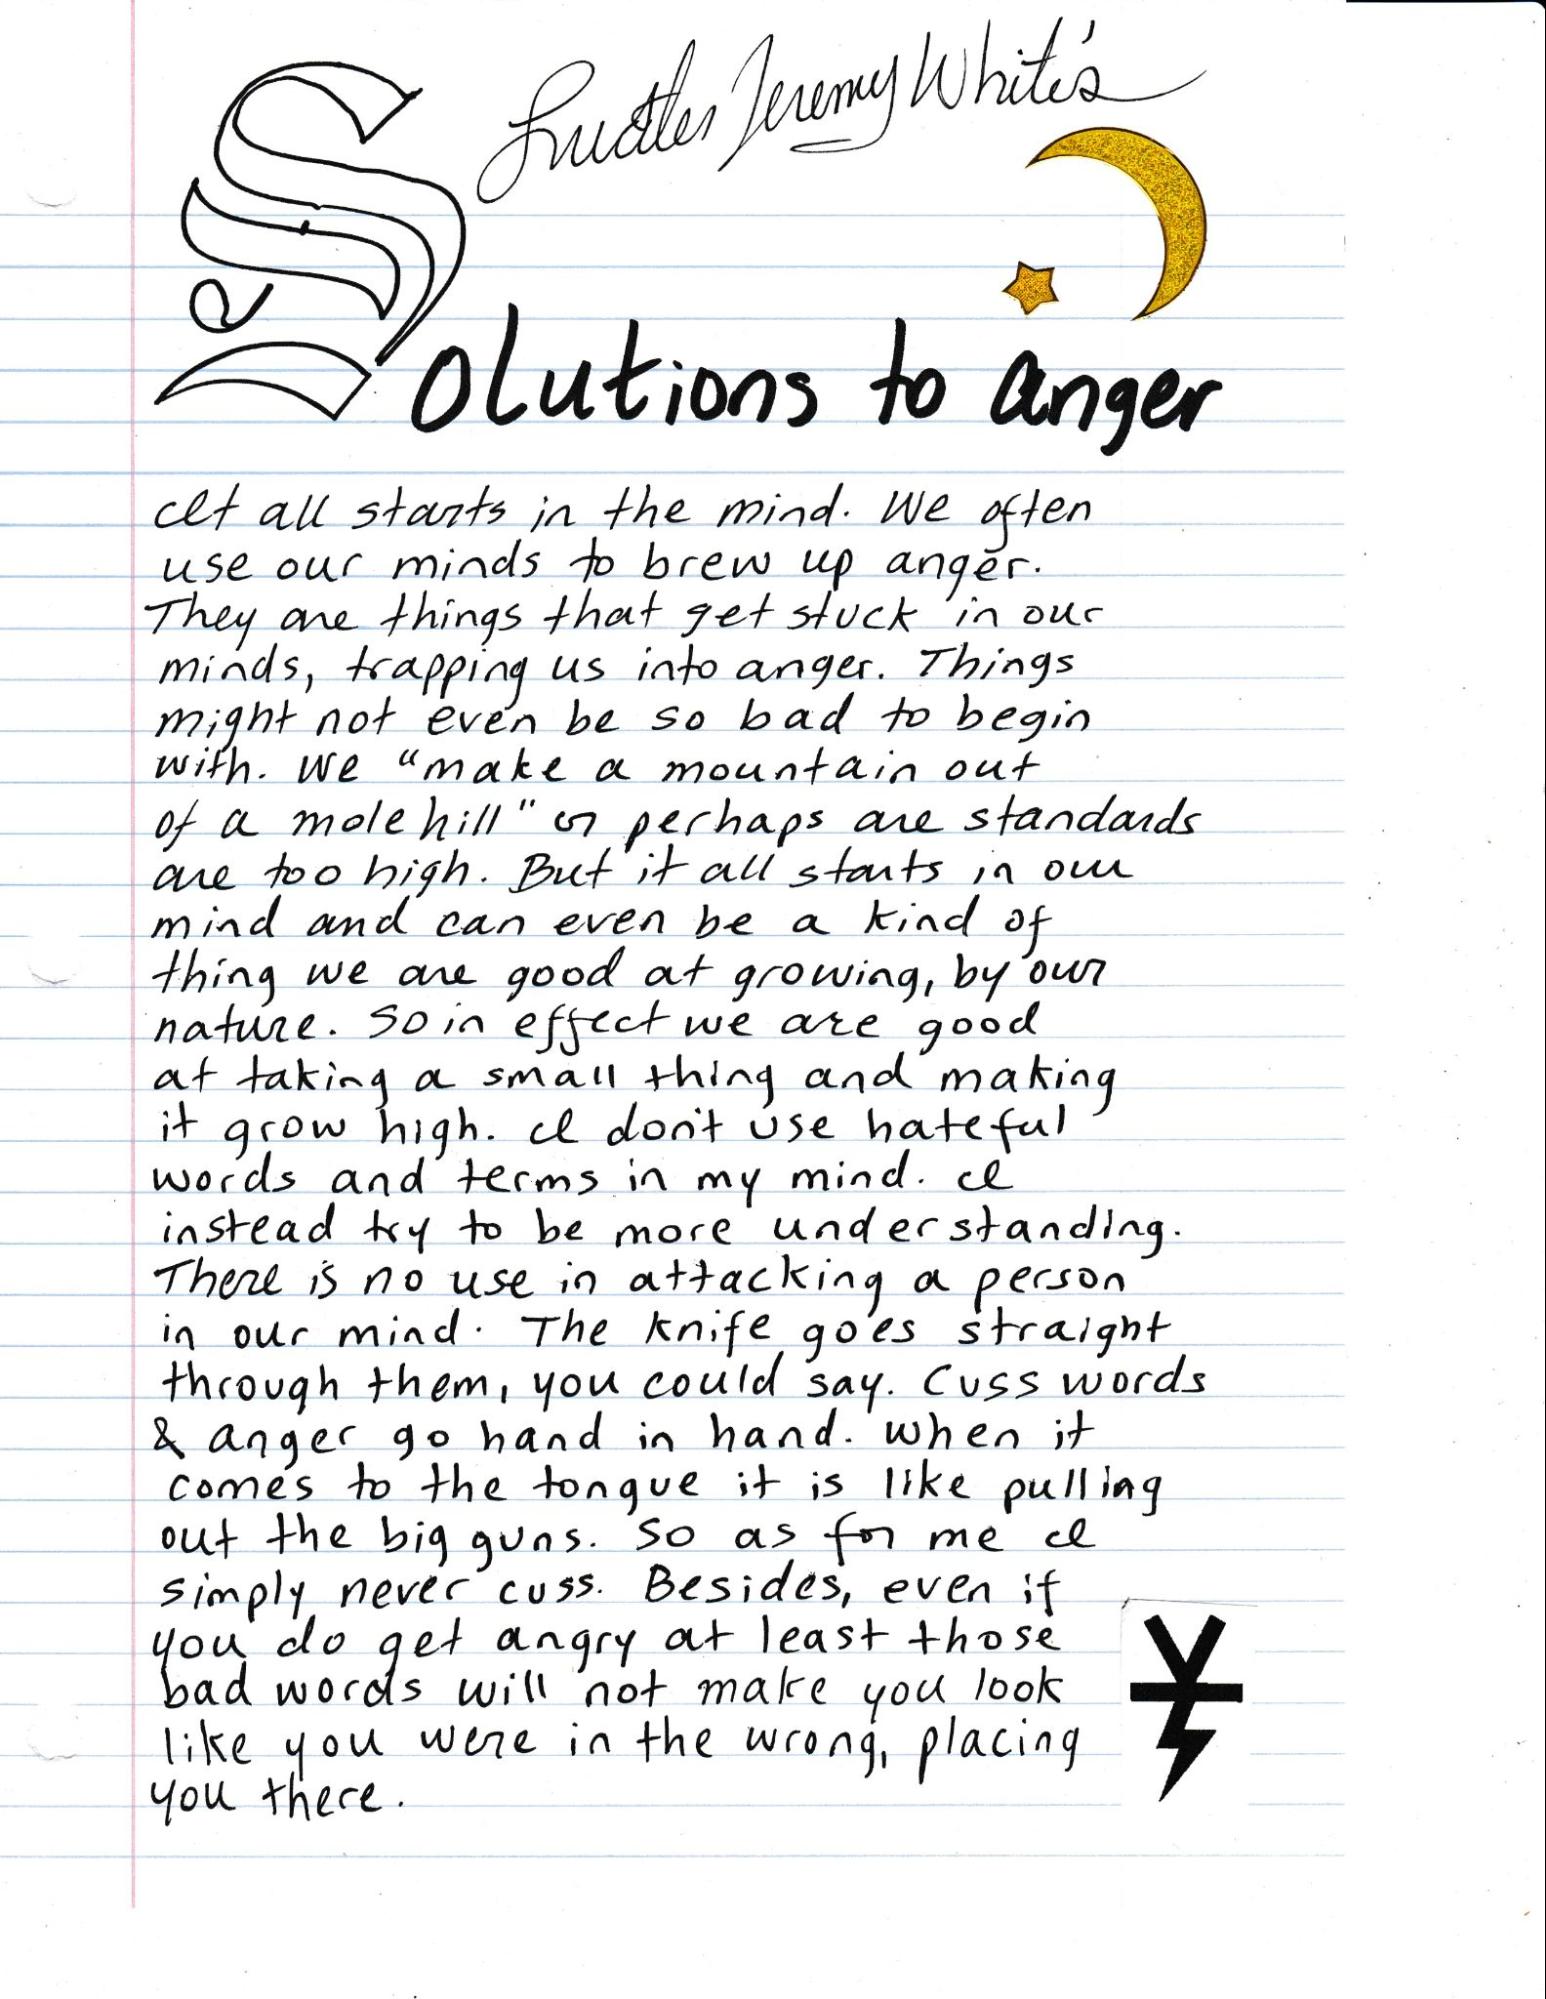 Jeremy White's
Solutions to anger
It all starts in the mind. We often
use our minds to brew up anger.
They are things that get stuck in our
minds, trapping us into anger. Things
might not even be so bad to begin
with. We "make a mountain out
of a mole hill" or perhaps are standards
are too high. But it all starts in our
mind and can even be a kind of
thing we are good at growing, by our
nature. So in effect we are good
at taking a small thing and making
it grow high. I don't use hateful
words and terms in my mind. I
instead try to be more understanding.
There is no use in attacking a person
in our mind. The knife goes straight
through them, you could say. Cuss words
& anger go hand in hand. When it
comes to the tongue it is like pulling
out the big guns. So as for me I
simply never cuss. Besides, even if
you do get angry at least those
bad words will not make you look
like you were in the wrong, placing
you there.